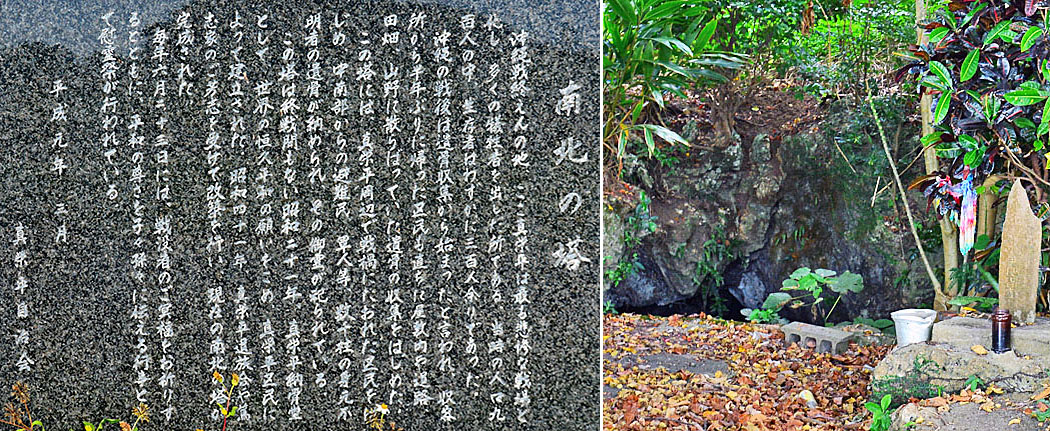 南北の塔
沖縄戦終えんの地、ここ真栄平は最も悲惨な戦場と
化し、多くの犠牲者を出した所である。当時の人口九
百人の中、生存者はわずかに三百人余りであった。
沖縄の戦後は遺骨収集から始まったと言われ、収容
所から半年ぶりに帰った区民も道をはじめ屋敷内や道路
田畑、山野に散らばっていた遺骨の収集をはじめた。
この塔には、真栄平周辺で戦禍にたおれた区民をは
じめ、中南部からの避難民、軍人等、数千柱の身元不
明者の遺骨が納められ、その御霊が祀られている。
この塔は終戦間もない昭和二十一年、真栄平納骨堂
として、世界の恒久平和の願いをこめ、真栄平区民に
よって建立され、昭和四十一年、真栄平遺族会や篤
志家のご芳志を受けて改築を行い、現在の南北の塔が
完成された。
毎年六月二十三日には、戦没者のご冥福をお祈りす
るとともに、平和の尊さを子々孫々に伝える行事とし
て慰霊祭が行われている。
平成元年 三月
真栄平自治会